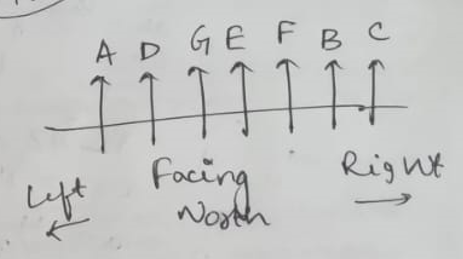 A D G E F B C
Facing
North
Left
Right